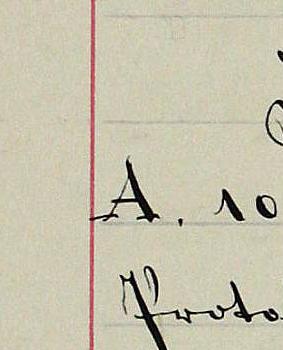 A. 10
Proto